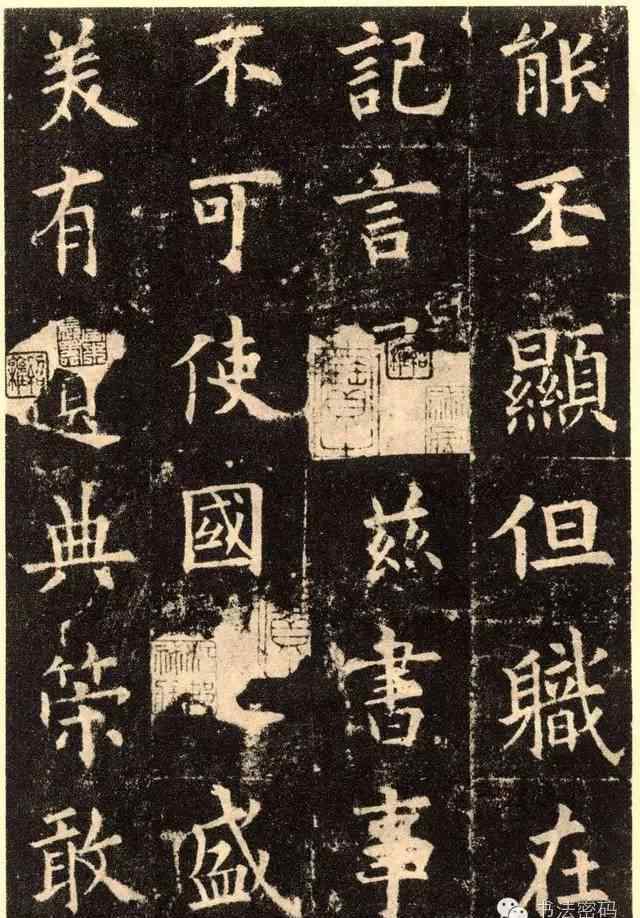 能丕顯但職在
記言茲書事
不可使國盛
美有遺典策敢
书法密码